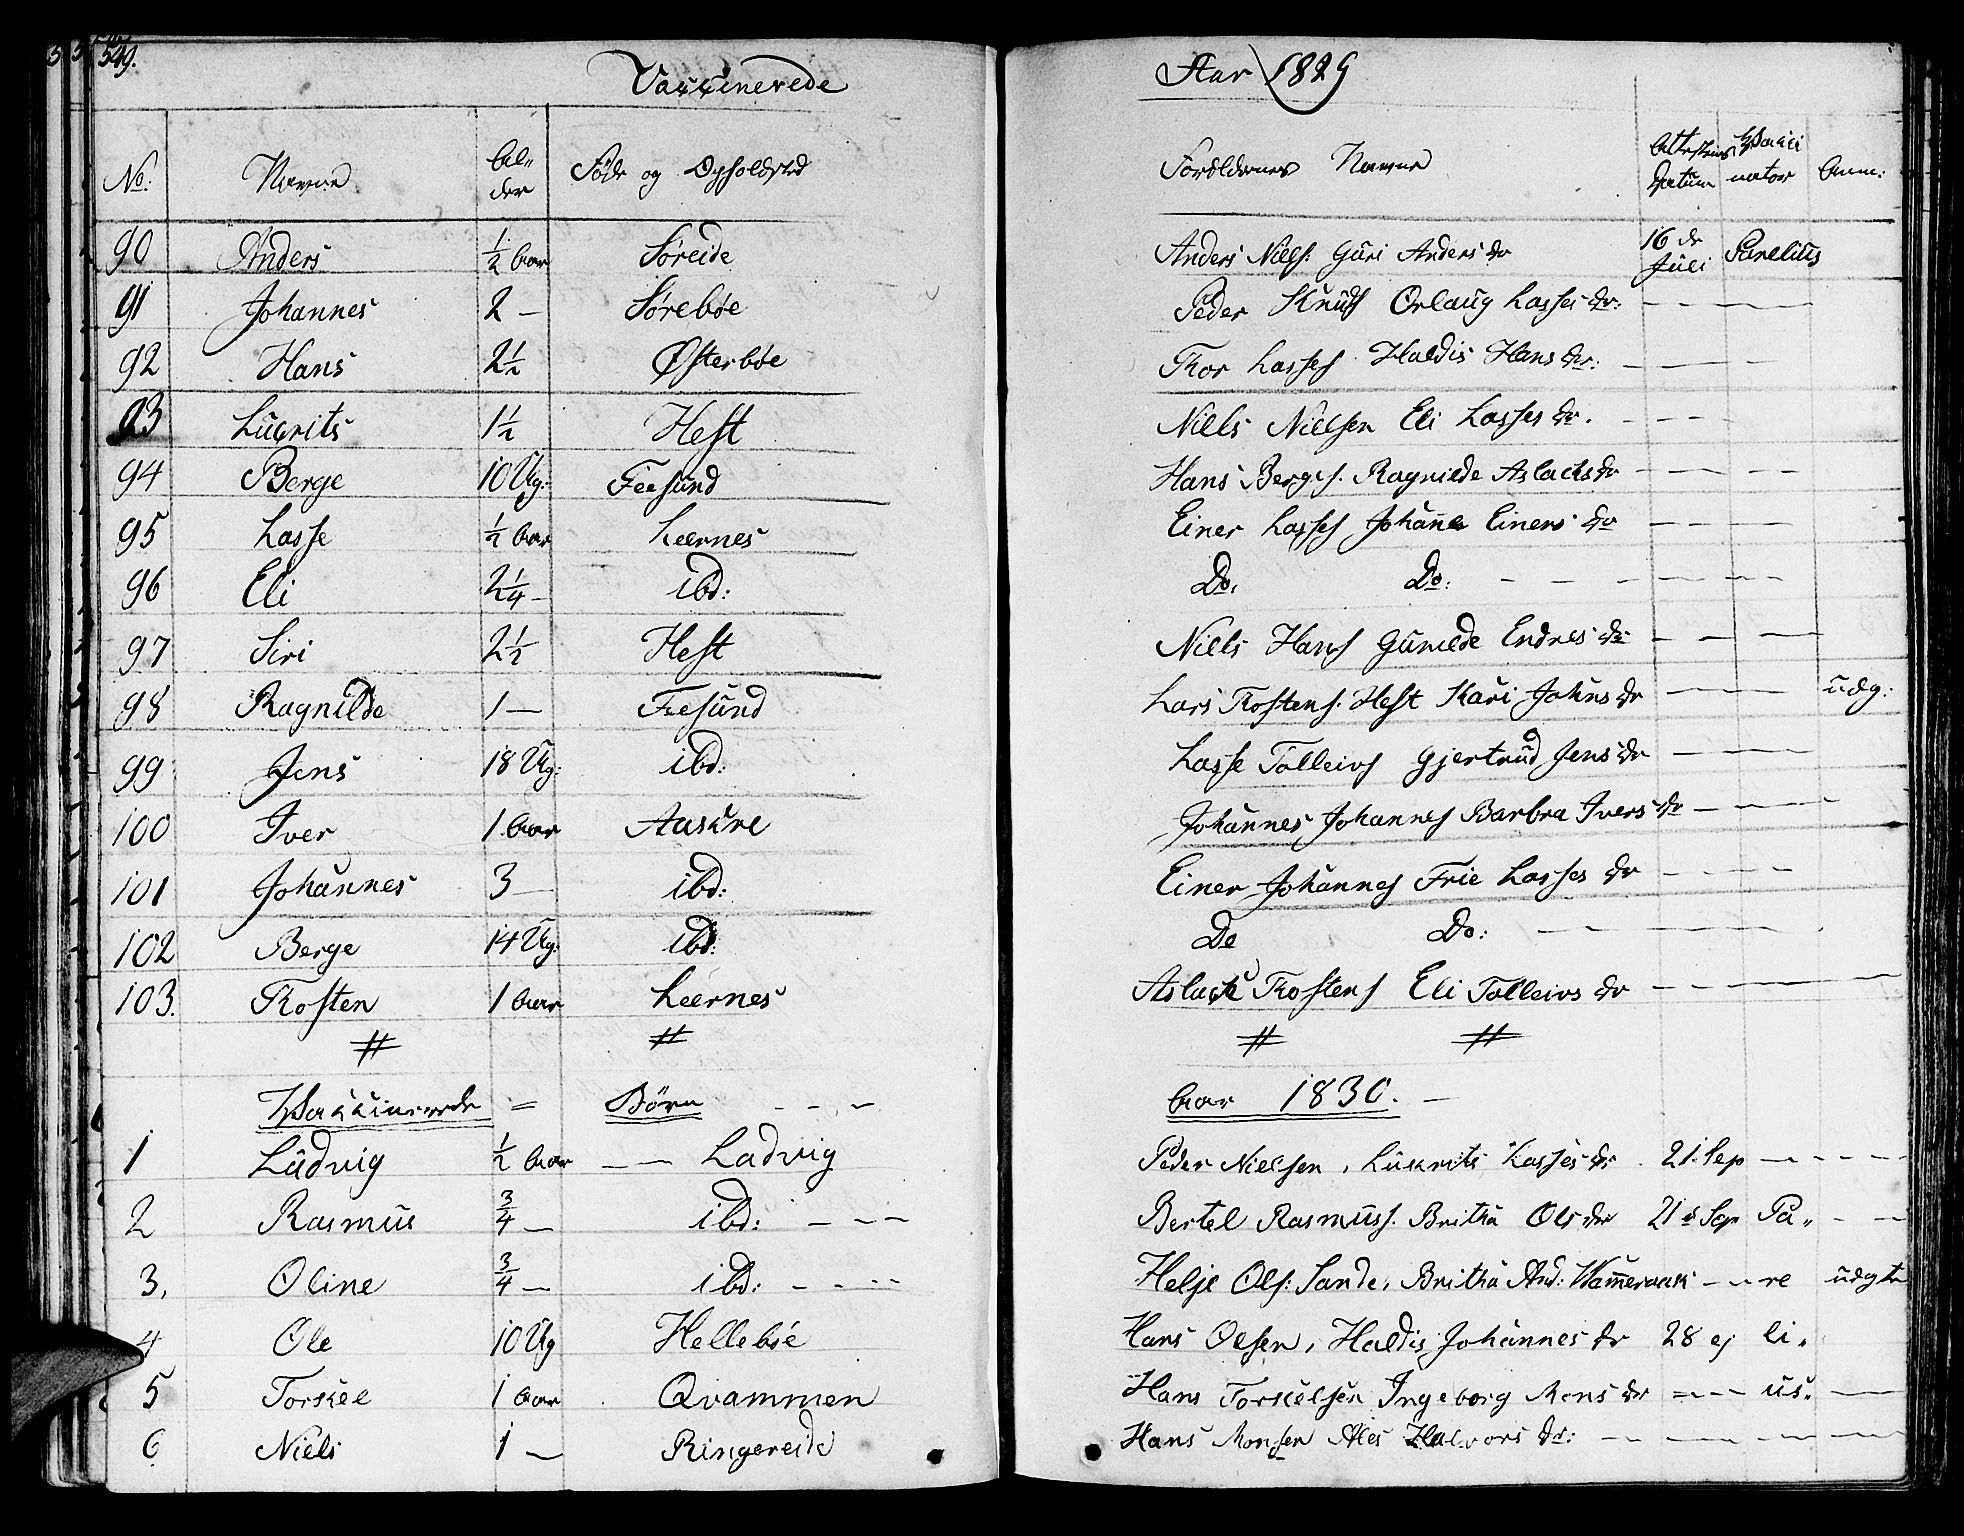 549.
Vaccinerede Aar 1829
No. Navne Al-der Føde og Opholdsted Forældrenes Navne Attestens Datum Vacci nator Anm:
90 Anders ½ Aar Søreide Anders Niels: Guri Anders dr 16 de Juli Parelius
91 Johannes 2 — Sørebøe Peder Knuds Orlaug Lasses dr: — — —
92 Hans 2½ Østerbøe Thor Lasses Haldis Hans dr: — — —
93 Lucrits 1½ Heft Niels Nielsen Eli Lasses dr. — — —
94 Berge 10 Ug: Feesund Hans Berges. Ragnilde Aslachs dr — — —
95 Lasse ½ Aar Leernes Einer Lasses Johanna Einers dr — — —
96 Eli 2¼ — ibd: Do. Do: — — — — —
97 Siri 2½ Heft Niels Hans Gunilde Endres dr — — —
98 Ragnilde 1 — Feesund Lars Thostens. Heft Kari Johns dr — — — udg:
99 Jens 18 Ug: ibd: Lasse Tolleivs Gjertrud Jens dr — — —
100 Iver 1 Aar Aaskre Johannes Johannes Barbra Ivers dr — — —
101 Johannes 3 — ibd: Einer Johannes Frie Lasses dr — — —
102 Berge 14 Ug: ibd: Do Do: — — — —
103. Thosten 1 Aar Leernes Aslack Thostens Eli Tolleivs dr — — —
Vaccinerede = Børn - - - Aar 1830. —
1 Ludvig ½ Aar — — Ladvig Peder Nielsen, Lukrits Lasses dr. 21. Sep — — —
2 Rasmus ¾ — ibd: — — — Bertel Rasmuss. Britha Ols dr 21 d Sep Pa„ — —
3. Oline ¾ — ibd: — — — Helje Ols: Sande, Britha And: — — re udgt
4 Ole 10 Ug Hellebøe Hans Olsen, Haldis Johannes dr 28 ej li„
5 Torskel 1 Aar Qvammen Hans Torskelsen Ingeborg Mons dr = — — us„ —
6 Niels 1 — Ringereide Hans Monsen Ales Halvors dr: — — — —